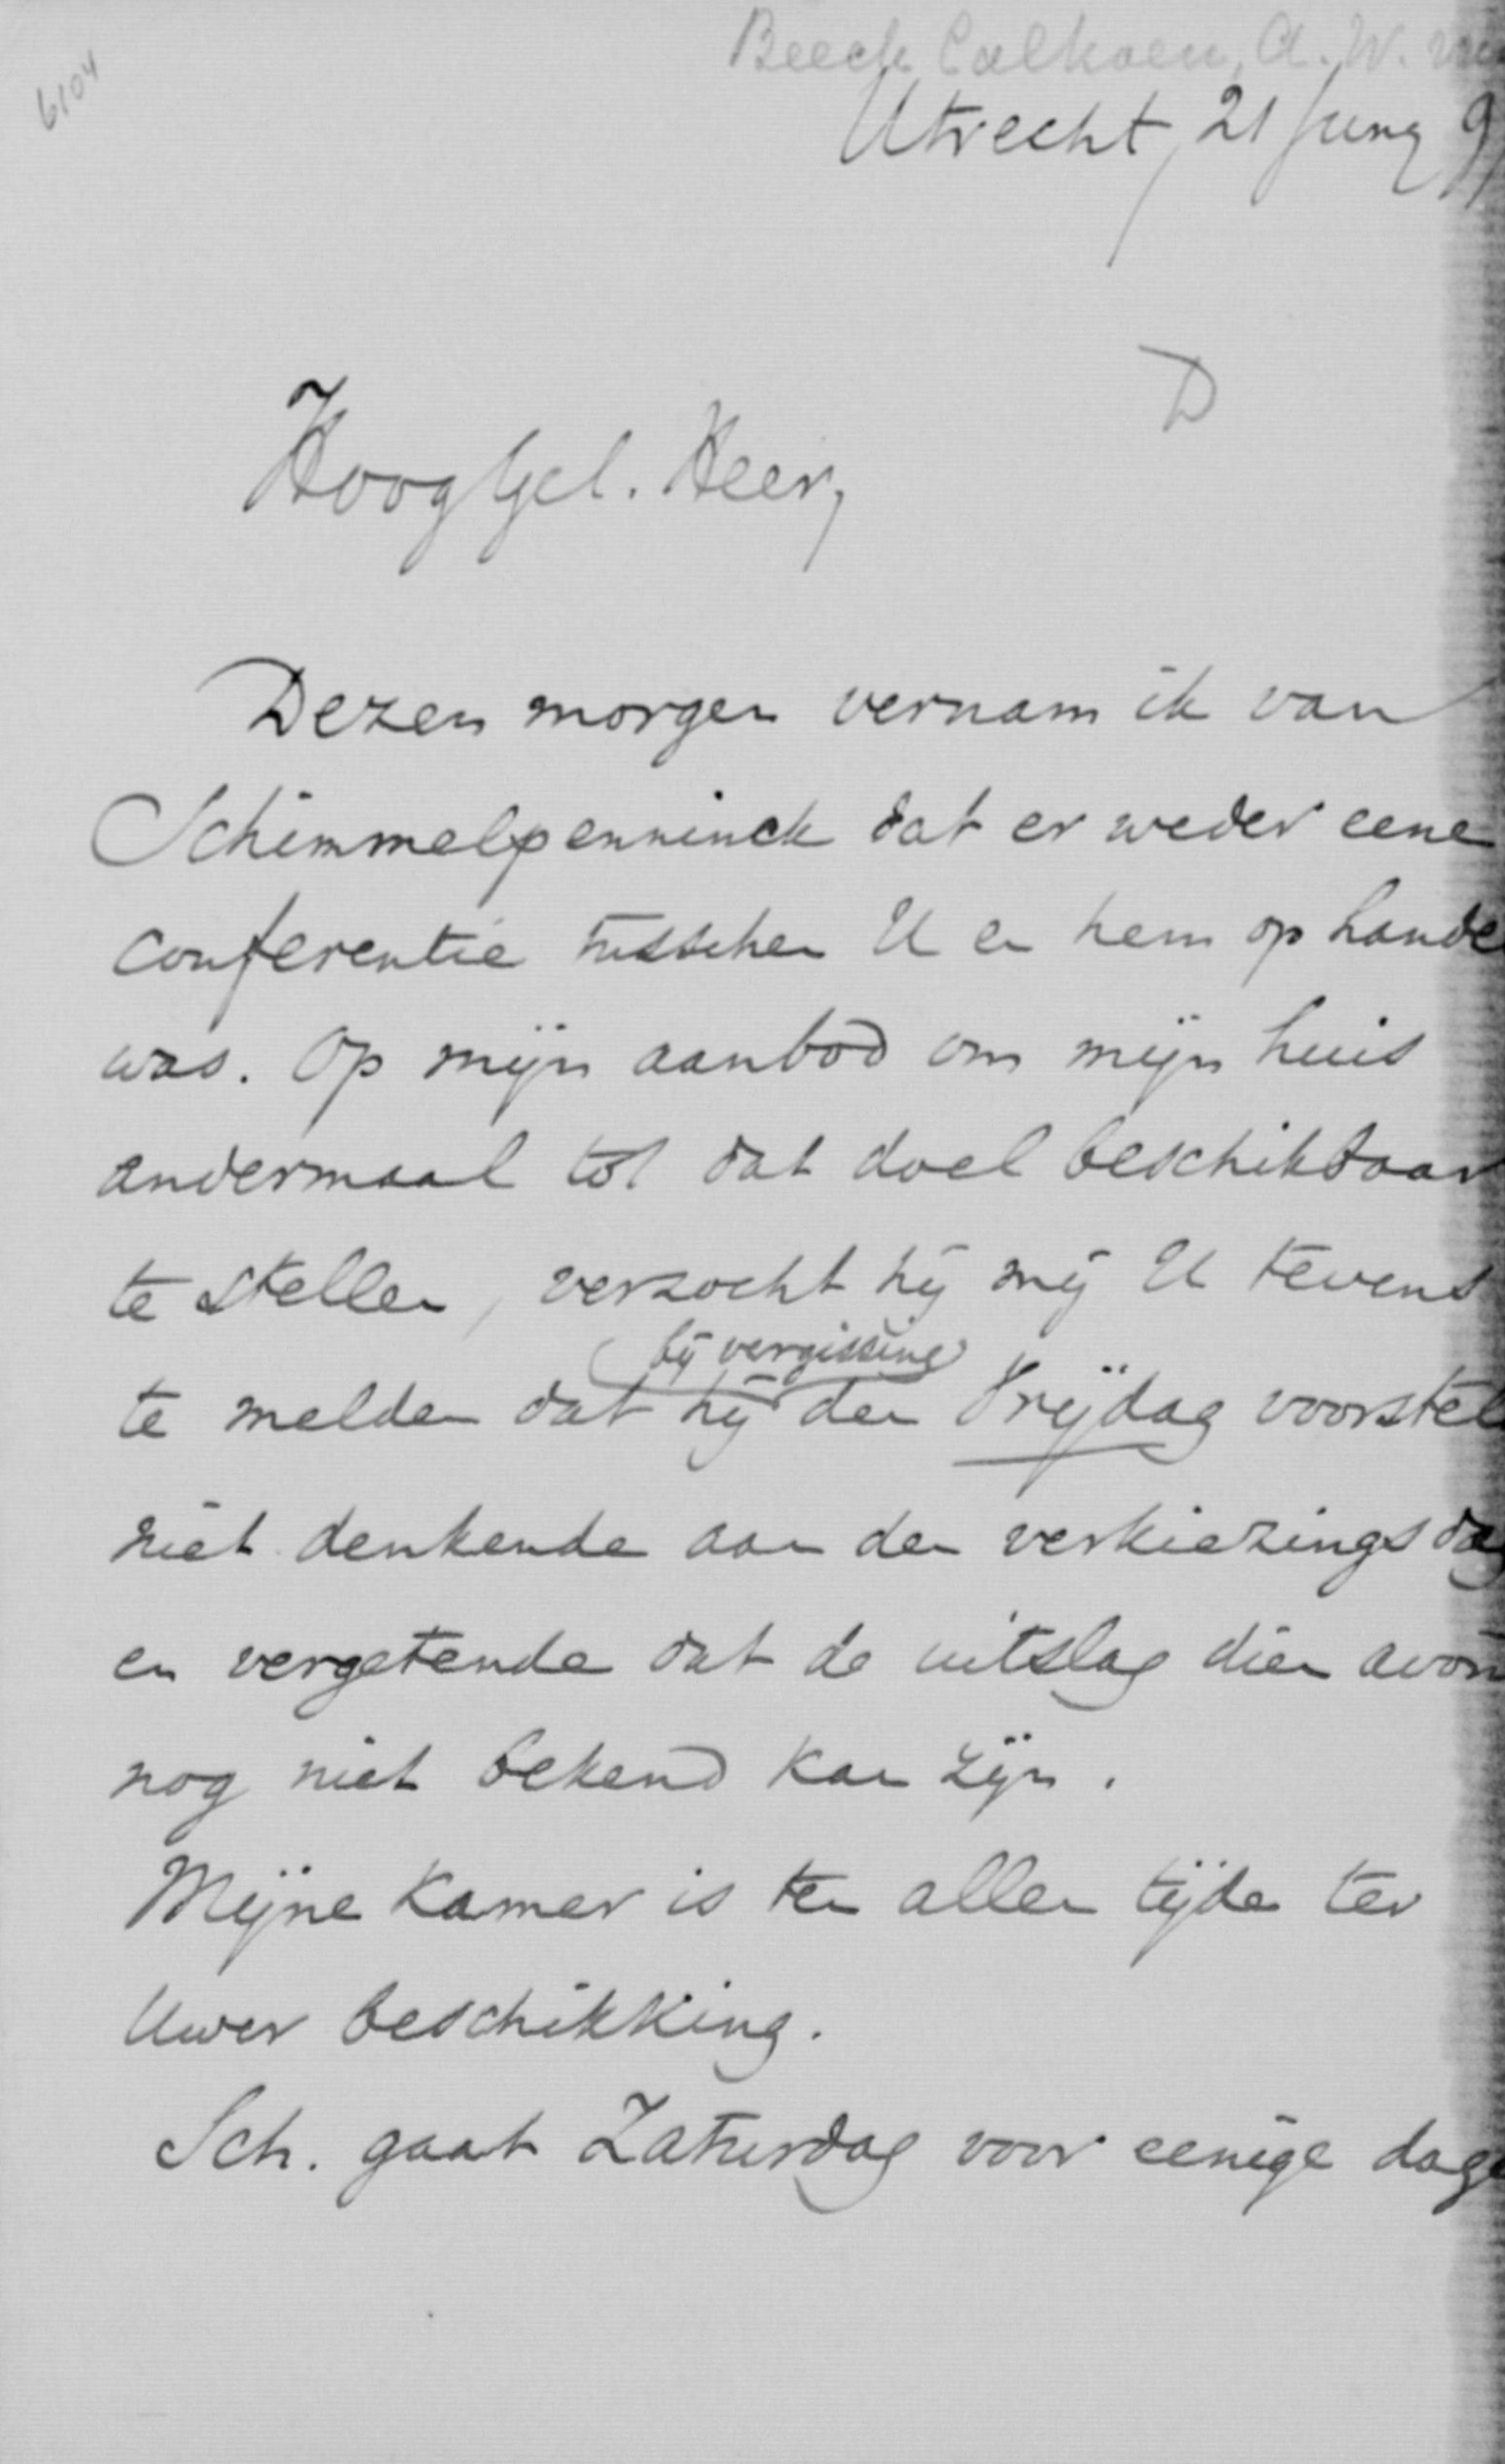 6104
Beeck Calkoen, A. W. van
Utrecht, 21 Juny 97
D
HoogGel. Heer,
Dezen morgen vernam ik van
Schimmelpenninck dat er weder eene
conferentie tusschen U en hem op hande
was. Op mijn aanbod om mijn huis
andermaal tot dat doel beschikbaar
te stellen, verzocht hij mij U tevens
(bij vergissing)
te melden dat hij den Vrijdag voorstel
niet denkende aan den verkiezingsdag
en vergetende dat de uitslag dien avon
nog niet bekend kan zijn.
Mijne kamer is ten allen tijde ter
Uwer beschikking.
Sch. gaat Zaturdag voor eenige dage